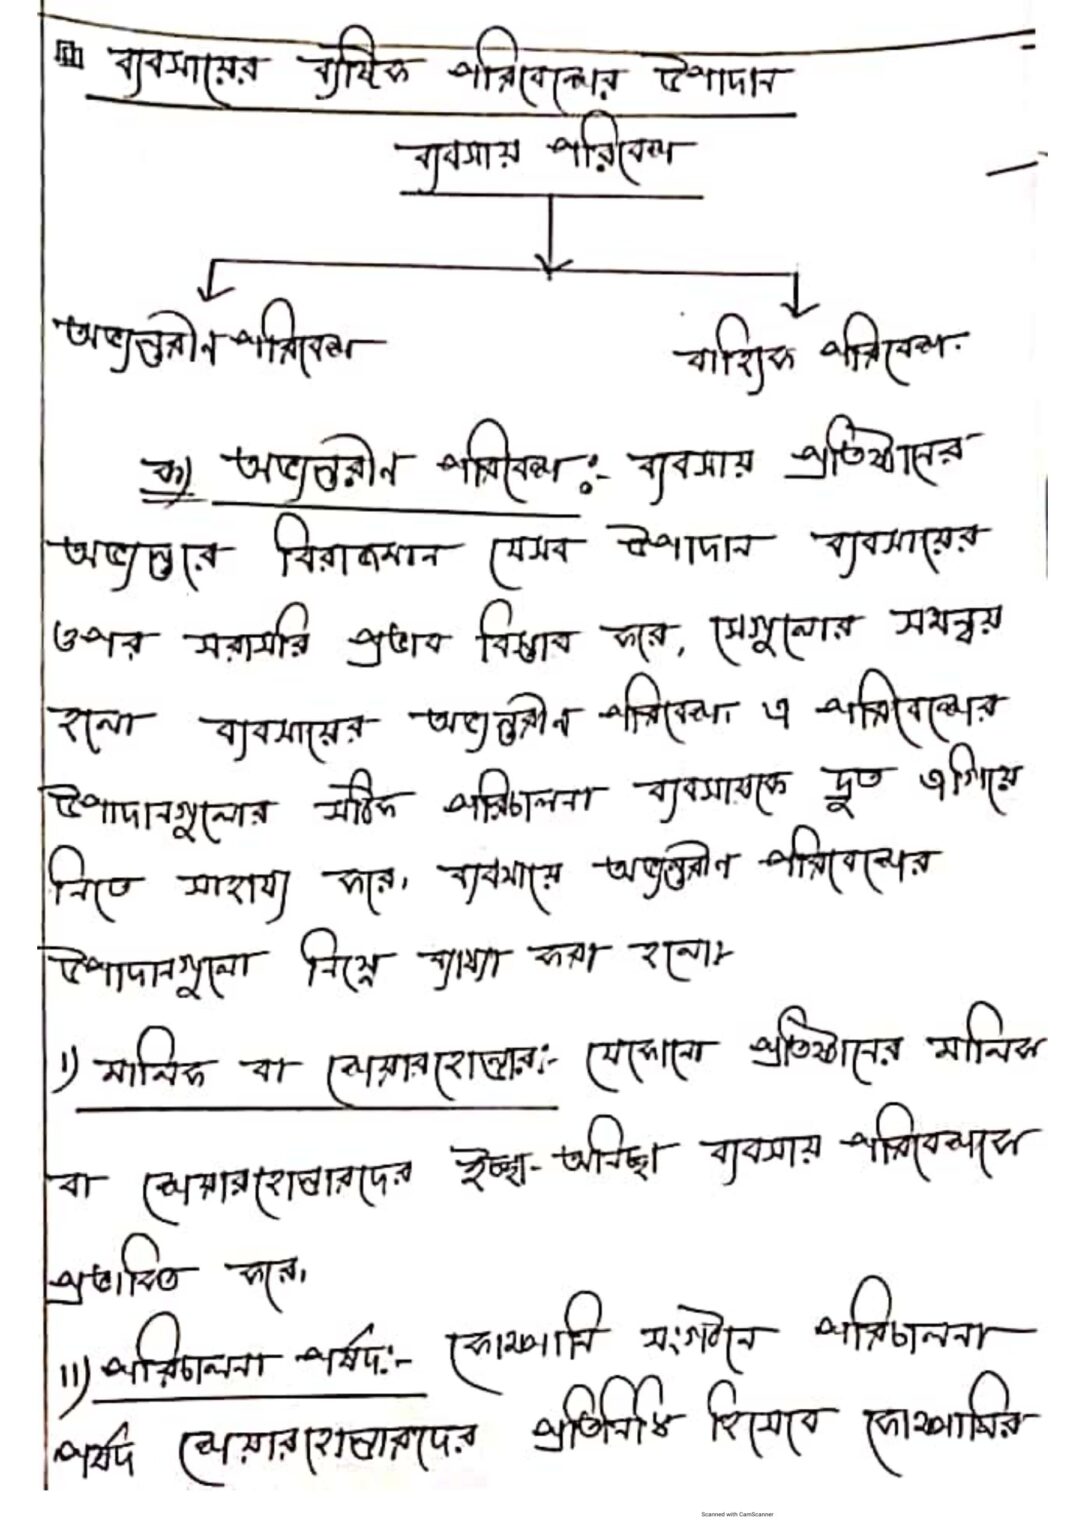 ব্যবসায়ের ব্যষ্টিক পরিবেশের উপাদান
ব্যবসায় পরিবেশ
অভ্যন্তরীন পরিবেশ বাহ্যিক পরিবেশ
ক) অভ্যন্তরীন পরিবেশ:- ব্যবসায় প্রতিষ্ঠানের
অভ্যন্তরে বিরাজমান যেসব উপাদান ব্যবসায়ের
ওপর সরাসরি প্রভাব বিস্তার করে, সেগুলোর সমন্বয়
হলো ব্যবসায়ের অভ্যন্তরীন পরিবেশ। এ পরিবেশের
উপাদানগুলোর সঠিক পরিচালনা ব্যবসায়কে দ্রুত এগিয়ে
নিতে সাহায্য করে। ব্যবসায়ে অভ্যন্তরীন পরিবেশের
উপাদানগুলো নিম্নে ব্যাখ্যা করা হলো।
i) মালিক বা শেয়ারহোল্ডার:- যেকোনো প্রতিষ্ঠানের মালিক
বা শেয়ারহোল্ডারদের ইচ্ছা-অনিচ্ছা ব্যবসায় পরিবেশকে
প্রভাবিত করে।
ii) পরিচালনা পর্ষদ:- কোম্পানি সংগঠনে পরিচালনা
পর্ষদ শেয়ারহোল্ডারদের প্রতিনিধি হিসেবে কোম্পানির
Scanned with CamScanner